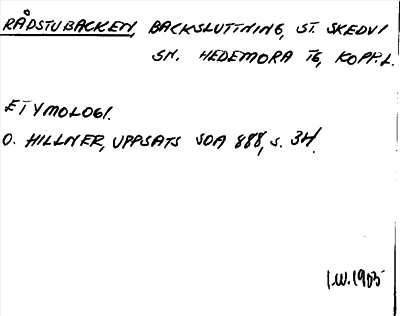 RÅDSTUBACKEN, BACKSLUTTNING, ST. SKEDVI
SN. HEDEMORA TG, KOPP.L.
ETYMOLOGI.
O. HILLNER, UPPSATS SOA 888, S. 34.
I.W. 1985